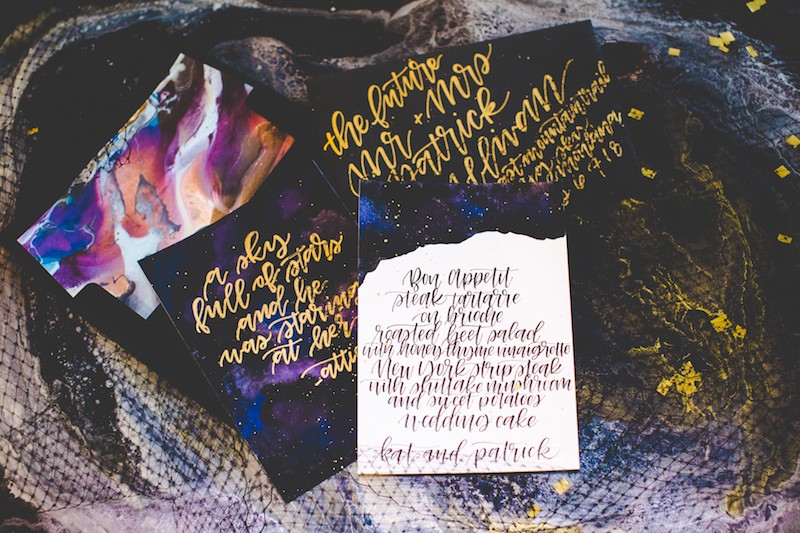 the future
Mr + Mrs
Patrick
mountain trail
montana
a sky
full of stars
and he
was staring
at her
Bon Appetit
steak tartarre
on brioche
roasted beet salad
with honey thyme vinaigrette
New York strip steak
with shiitake mushroom
and sweet potatoes
wedding cake
kat and patrick